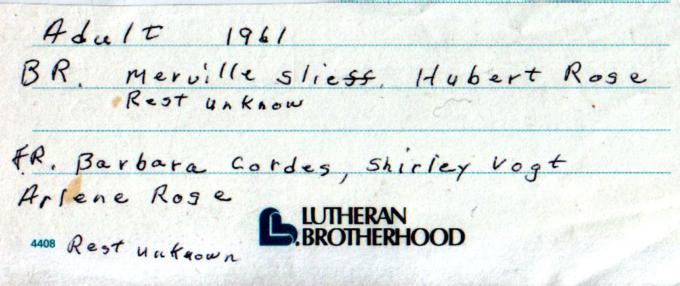 Adult 1961
BR. Merville Slieff, Hubert Rose
Rest unknow
FR. Barbara Cordes, Shirley Vogt
Arlene Rose
LUTHERAN
BROTHERHOOD
4408 Rest unknown